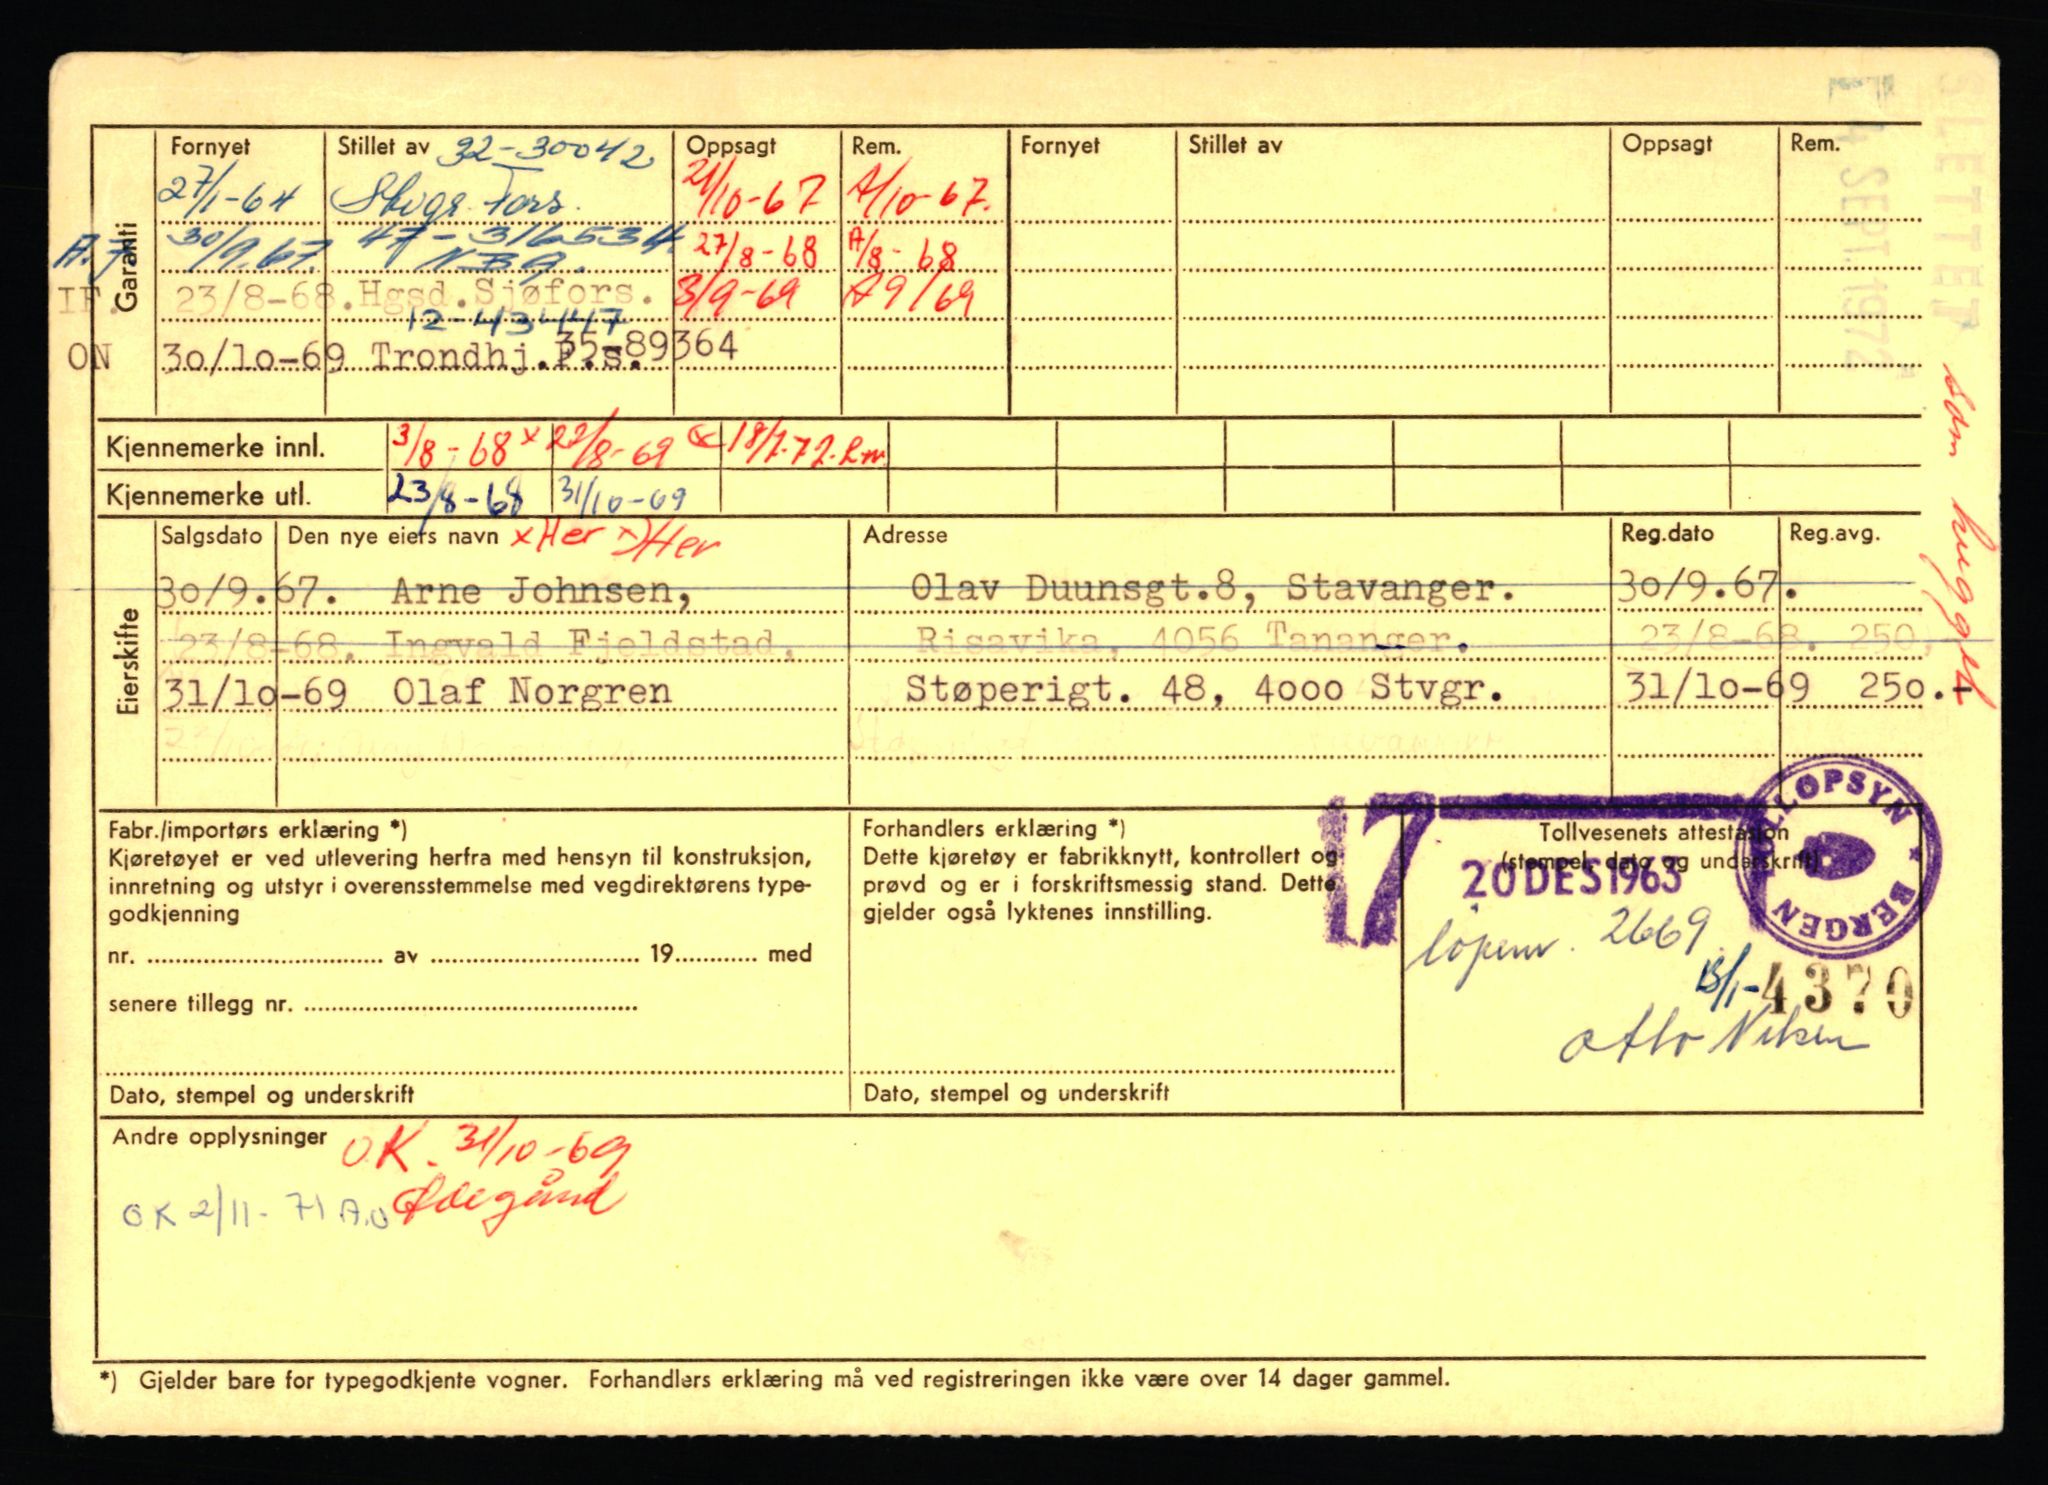 SLETTET
14 SEPT. 1972
som hugget
Garanti
Fornyet Stillet av 32-30042 Oppsagt Rem. Fornyet Stillet av Oppsagt Rem.
27/1-64 Skogr. Fors. 21/10-67 A/10-67.
A.J. 30/9.67. 47-316534. 27/8-68 A/8-68
NBG.
IF. 23/8-68. Hgsd. Sjøfors. 3/9-69 A 9/69
12-43447
ON 30/10-69 Trondhj.F.s. 35-89364
Kjennemerke innl. 3/8-68 x 22/8-69 18/7.72.
Kjennemerke utl. 23/8-68 31/10-69
Eierskifte
Salgsdato Den nye eiers navn x Her x) Her Adresse Reg.dato Reg.avg.
30/9.67. Arne Johnsen, Olav Duunsgt.8, Stavanger. 30/9.67.
23/8-68. Ingvald Fjeldstad, Risavika, 4056 Tananger. 23/8-68. 250,-
31/10-69 Olaf Norgren Støperigt. 48, 4000 Stvgr. 31/10-69 250.-
Fabr./importørs erklæring *)
Kjøretøyet er ved utlevering herfra med hensyn til konstruksjon,
innretning og utstyr i overensstemmelse med vegdirektørens type-
godkjenning
nr. ........ av ........ 19........ med
senere tillegg nr. ........
Dato, stempel og underskrift
Forhandlers erklæring *)
Dette kjøretøy er fabrikknytt, kontrollert og
prøvd og er i forskriftsmessig stand. Dette
gjelder også lyktenes innstilling.
Dato, stempel og underskrift
17
Tollvesenets attestasjon
(stempel, dato og underskrift)
20 DES 1963
TOLLOPSYN * BERGEN
løpenr. 2669
13/1-4370
Otto Nilsen
Andre opplysninger
O.K. 31/10-69
Ødegård
OK 2/11-71 A.O
*) Gjelder bare for typegodkjente vogner. Forhandlers erklæring må ved registreringen ikke være over 14 dager gammel.